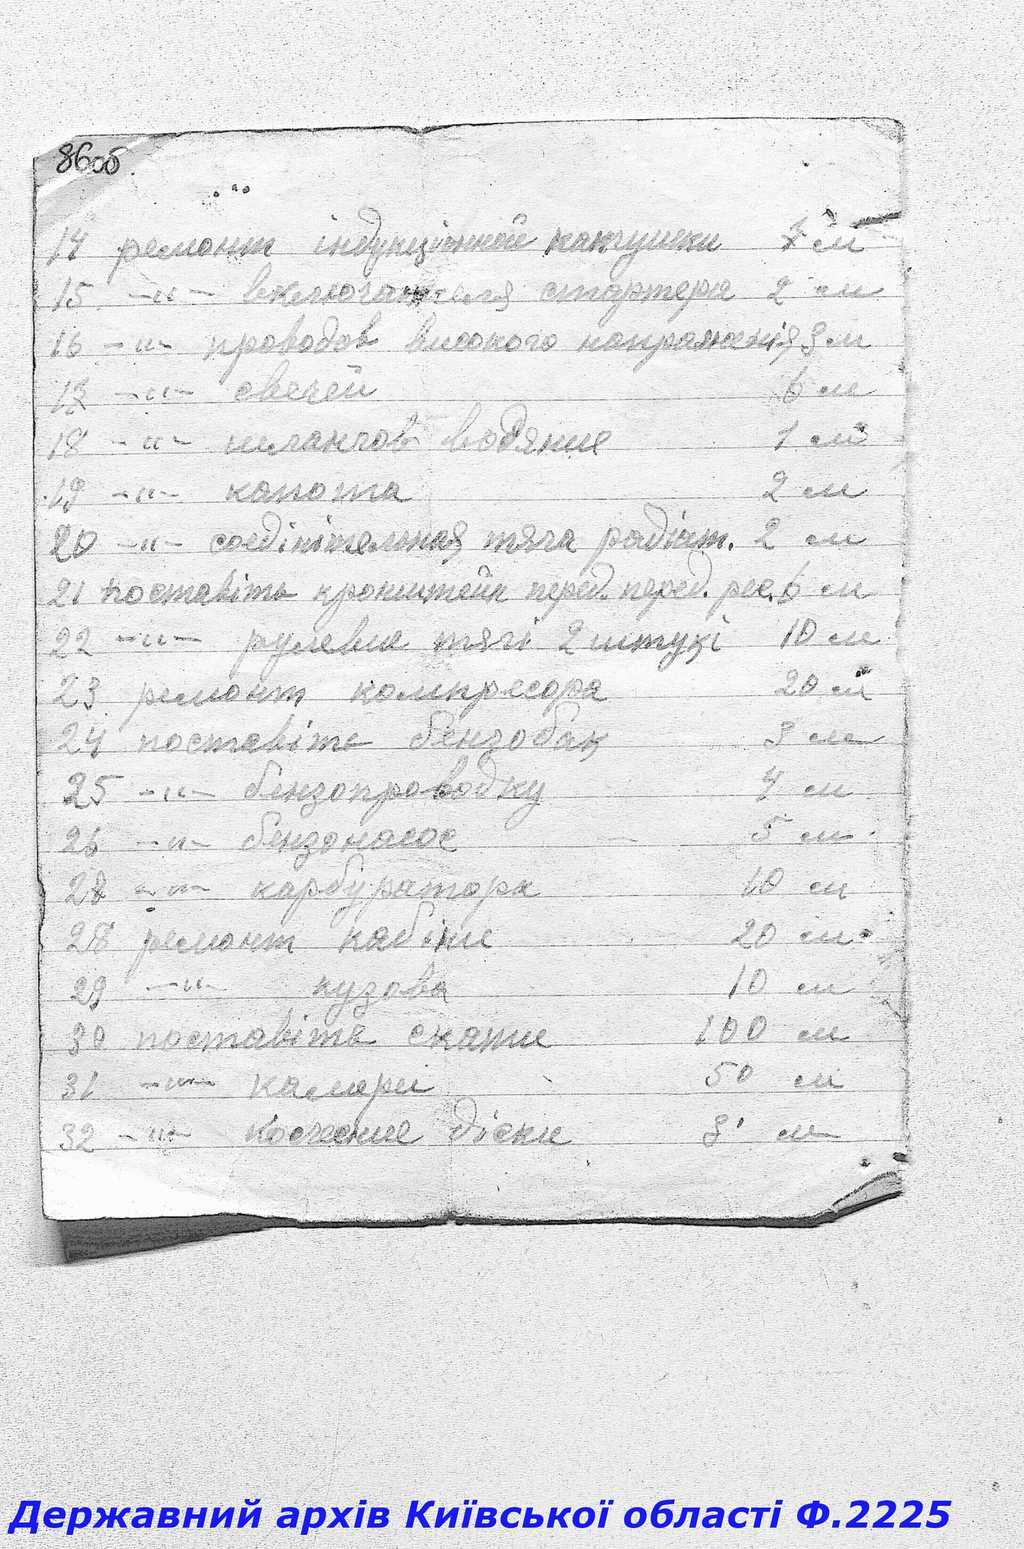 86об
14 ремонт індукціонной катушки 3 м
15 -"- включателя стартера 2 м
16 -"- проводов високого напраженія 3 м
17 -"- свечей 6 м
18 -"- шлангов водяние 1 м
19 -"- капота 2 м
20 -"- соедінітельная тяга радіат. 2 м
21 поставіть кронштейн перед. перед. рес. 6 м
22 -"- рулевие тягі 2 штукі 10 м
23 ремонт компресора 20 м
24 поставіть бензобак 3 м
25 -"- бензопроводку 4 м
26 -"- бензонасос 5 м
27 -"- карбуратора 10 м
28 ремонт кабіни 20 м
29 -"- кузова 10 м
30 поставіть скати 100 м
31 -"- камери 50 м
32 -"- діски 3 м
Державний архів Київської області Ф.2225